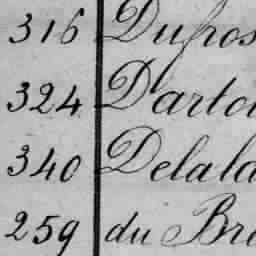 316 Dupos
324 Dartoi
340 Delala
259 du Bre